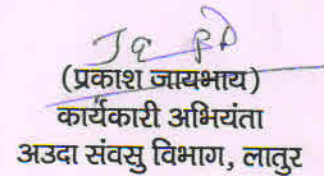 (प्रकाश जायभाय)
कार्यकारी अभियंता
अउदा संवसु विभाग, लातुर